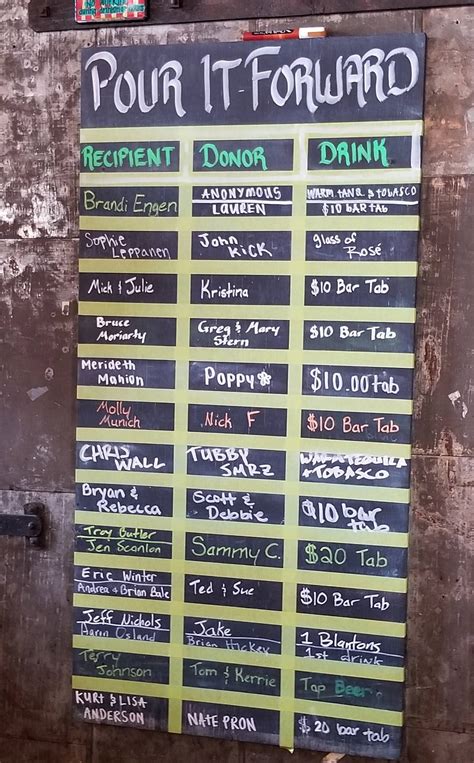 POUR IT FORWARD
RECIPIENT DONOR DRINK
Brandi Engen ANONYMOUS WARM TANQ & TOBASCO
LAUREN $10 BAR TAB
Sophie Leppanen John Kick glass of Rosé
Mick & Julie Kristina $10 Bar Tab
Bruce Moriarty Greg & Mary Stern $10 Bar Tab
Merideth Mahion Poppy $10.00 tab
Molly Munich Nick F $10 Bar Tab
CHRIS WALL TUBBY SMRZ TEQUILA + TOBASCO
Bryan & Rebecca Scott & Debbie $10 bar tab
Troy Butler
Jen Scanlon Sammy C. $20 Tab
Eric Winter
Andrea & Brian Bale Ted & Sue $10 Bar Tab
Jeff Nichols Jake 1 Blantons
Aaron Osland Brian Hickey 1st drink
Terry Johnson Tom & Kerrie Tap Beer
KURT & LISA ANDERSON NATE PRON $20 bar tab